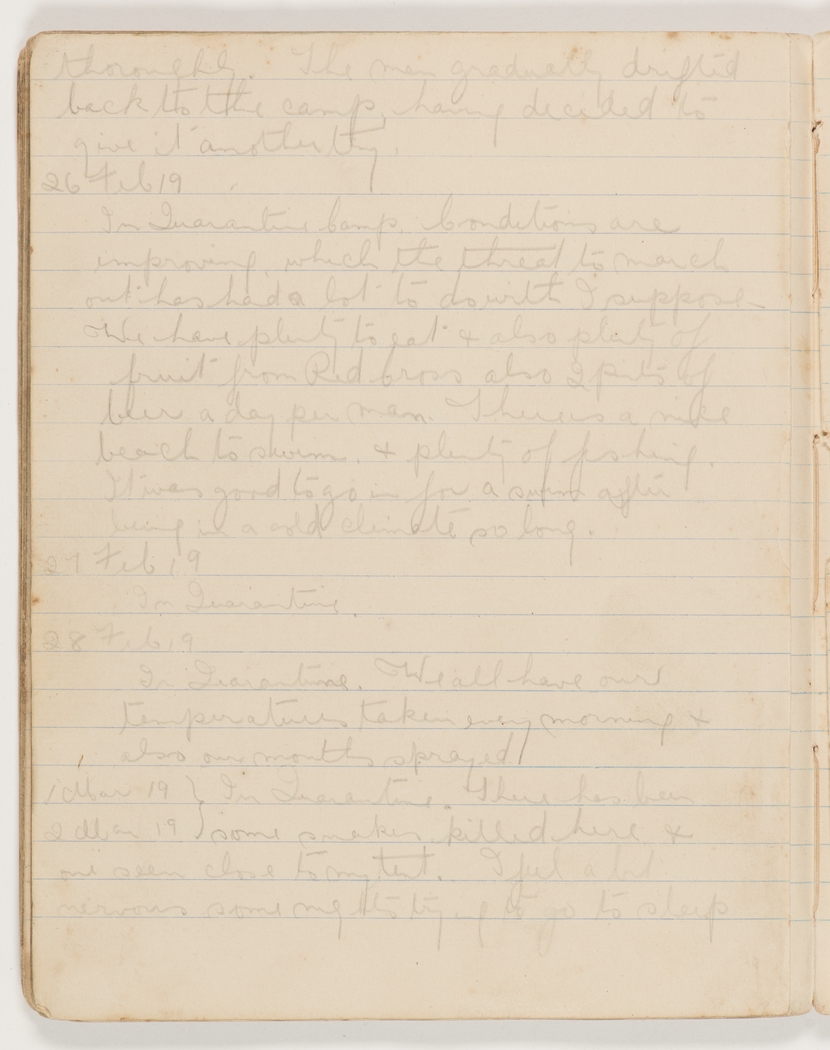 thoroughly. The men gradually drifted
back to the camp, having decided to
give it another try.
26 Feb 19
In Quarantine Camp. Conditions are
improving, which the threat to march
out has had a lot to do with I suppose.
We have plenty to eat & also plenty of
fruit from Red Cross also 2 pints of
beer a day per man. There is a nice
beach to swim. & plenty of fishing.
It was good to go in for a swim after
being in a cold climate so long.
27 Feb 19
In Quarantine.
28 Feb 19
In Quarantine. We all have our
temperatures taken every morning &
also our mouths sprayed
1 Mar 19 } In Quarantine. There has been
2 Mar 19 } some snakes killed here &
one seen close to my tent. I feel a bit
nervous some nights trying to go to sleep